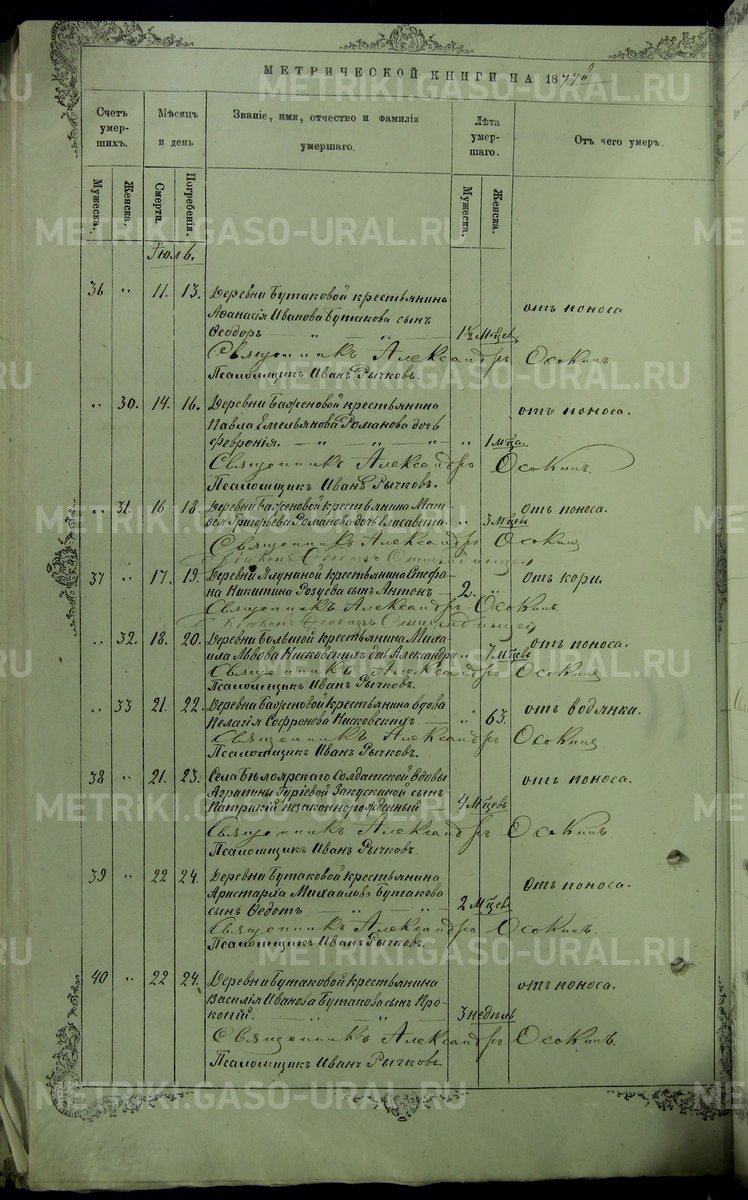 МЕТРИЧЕСКОЙ КНИГИ НА 1877й
Счетъ умершихъ.
Мѣсяцъ и день
Званіе, имя, отчество и фамилія умершаго.
Лѣта умершаго.
Отъ чего умеръ.
Мужеска. Женска. Смерти. Погребенія. Мужеска. Женска.
Іюль.
36 " 11. 13. Деревни Бутаковой крестьянина
отъ поноса
Аѳанасія Иванова Бутакова сынъ
Ѳеодоръ 1½ М-цевъ
Священникъ Александръ Осокинъ
Псаломщикъ Иванъ Рычковъ.
" 30. 14. 16. Деревни Баженовой крестьянина отъ поноса.
Павла Емельянова Романова дочь
Февронія. " 1 м-ца.
Священникъ Александръ Осокинъ.
Псаломщикъ Иванъ Рычковъ.
" 31. 16 18. Деревни Баженовой крестьянина Мат- отъ поноса.
вѣя Григорьева Романова дочь Елисавета. " 3 М-цевъ
Священникъ Александръ Осокинъ
37 " 17. 19. Деревни Ялуниной крестьянина Стефа- отъ кори.
на Никитина Розуева сынъ Антонъ 2. "
Священникъ Александръ Осокинъ
" 32. 18. 20. Деревни Большой крестьянина Миха- отъ поноса.
ила Львова Нисковскихъ дочь Александра " 7 М-цевъ
Священникъ Александръ Осокинъ
Псаломщикъ Иванъ Рычковъ.
" 33 21. 22. Деревни Баженовой крестьянина вдова отъ водянки.
Пелагія Софронова Нисковскихъ " 63.
Священникъ Александръ Осокинъ
Псаломщикъ Иванъ Рычковъ.
38 " 21. 23. Села Бѣлоярскаго Солдатской вдовы отъ поноса.
Агрипины Гуріевой Закускиной сынъ
Патрикій незаконнорожденный 4 М-цевъ
Священникъ Александръ Осокинъ.
Псаломщикъ Иванъ Рычковъ.
39 " 22 24. Деревни Бутаковой крестьянина отъ поноса.
Аристарха Михаилова Бутакова
сынъ Ѳедотъ 2 М-цевъ
Священникъ Александръ Осокинъ.
Псаломщикъ Иванъ Рычковъ.
40 " 22 24. Деревни Бутаковой крестьянина отъ поноса.
Василія Иванова Бутакова сынъ Про-
копій. 3 недѣль
Священникъ Александръ Осокинъ.
Псаломщикъ Иванъ Рычковъ.
METRIKI.GASO-URAL.RU